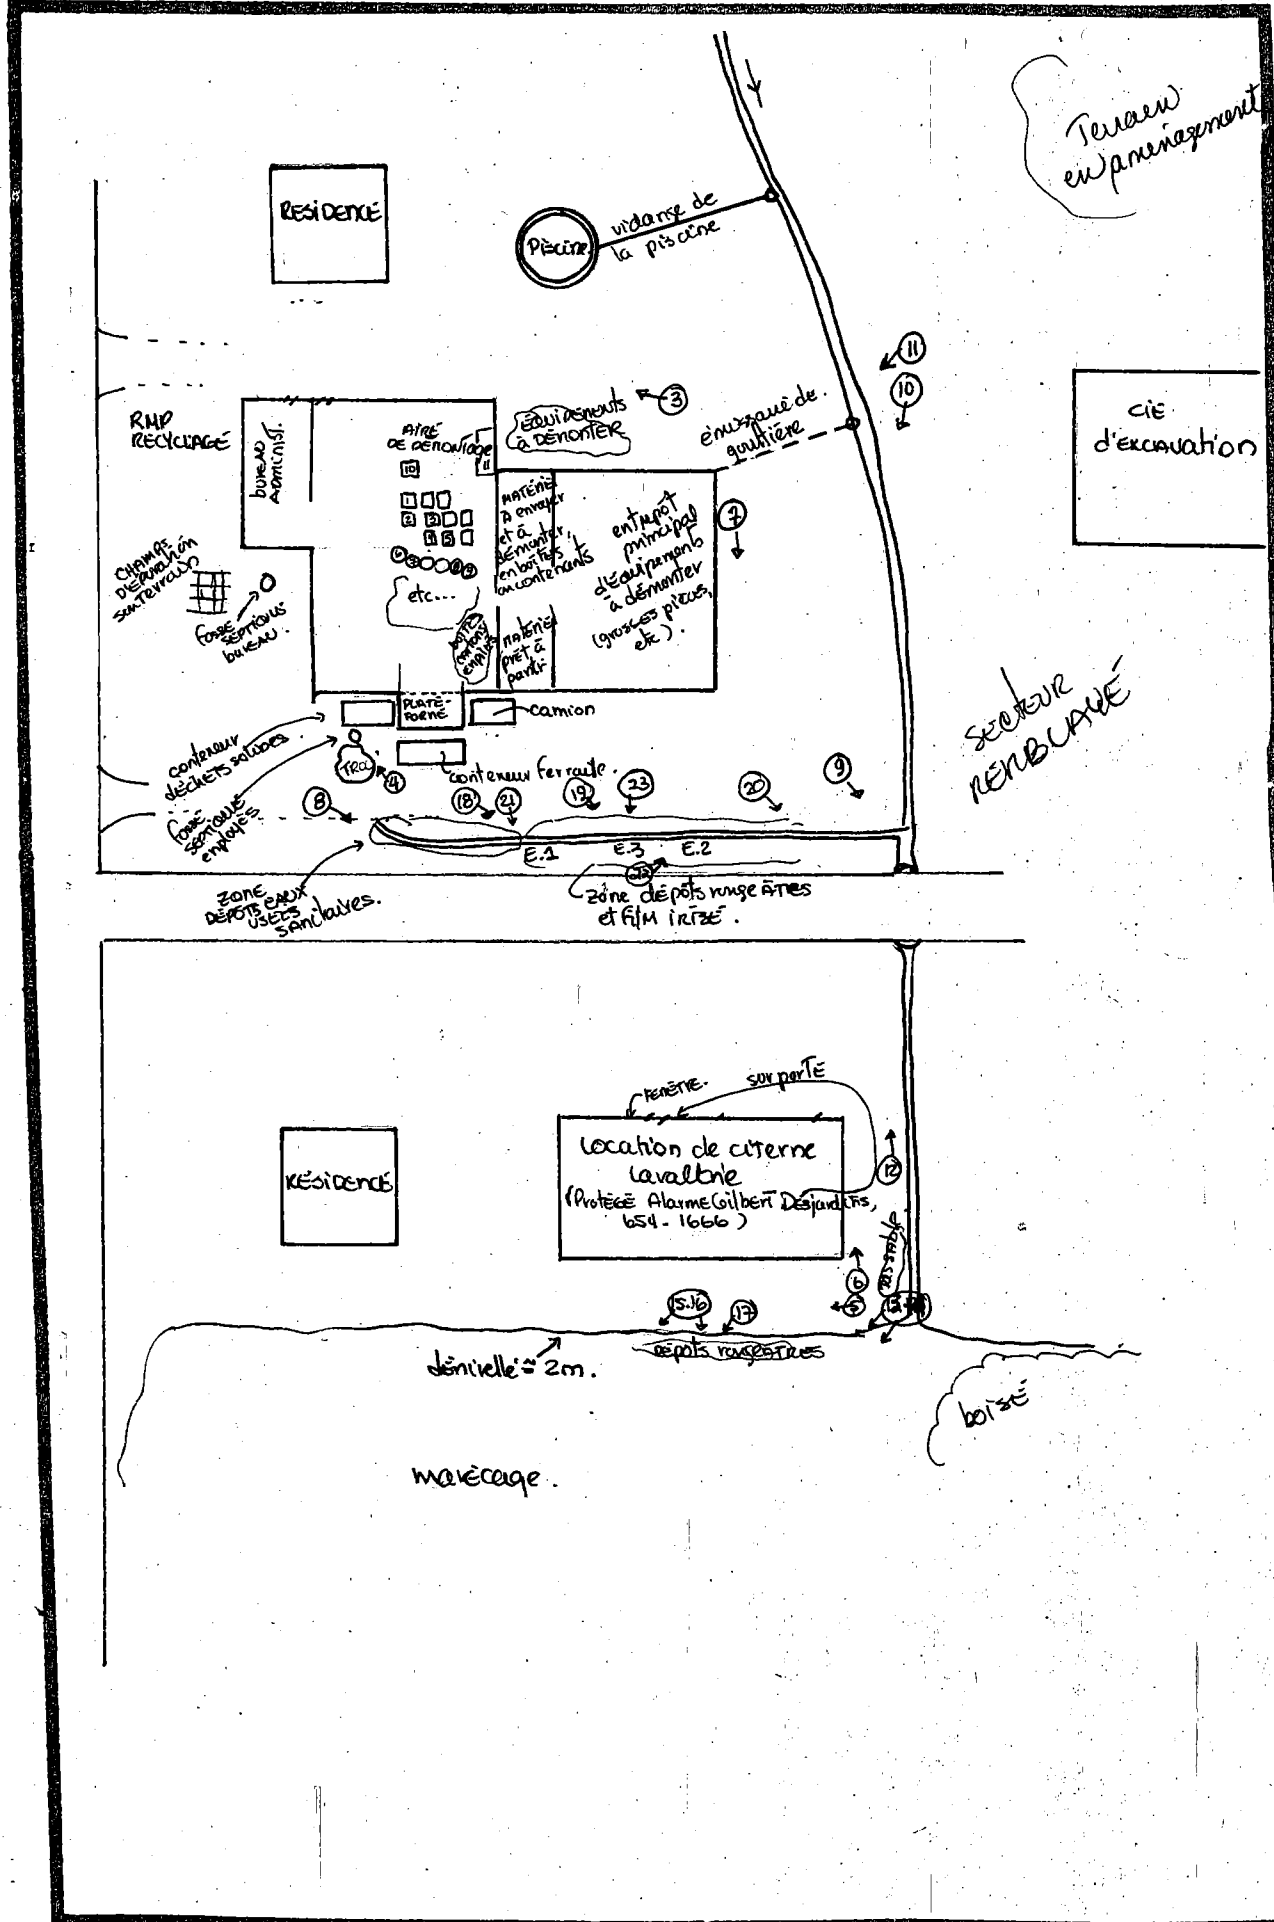 Terrain
en aménagement
RESIDENCE
Piscine
vidange de
la piscine
11
10
3
ÉQUIPEMENTS
À DÉMONTER
CIE
d'EXCAVATION
RMP
RECYCLAGE
BUREAU
ADMINIST.
AIRE
DE DÉMONTAGE
10
11
1
2
3
gouttière
MATÉRIEL
à envoyer
et à
démonter,
en boîtes,
ou contenants
entrepôt
principal
d'équipements
à démonter
(grosses pièces,
etc).
7
CHAMPS
D'ÉPURATION
souterrain
FOSSE
SEPTIQUE
bureau.
etc...
BOITES
CARTONS
EMPLOIS
MATÉRIEL
prêt à
partir
PLATE-
FORME
camion
SECTEUR
REMBLAYÉ
conteneur
DÉCHETS SOLIDES.
TROU
4
conteneur ferraille.
FOSSE
SEPTIQUE
employés
8
18
21
19
23
20
9
E.1
E.3
E.2
ZONE
DÉPÔTS EAUX
USÉES
SANITAIRES.
zone dépôts rougeÂTRES
et FILM IRISÉ.
FENÊTRE.
sur porTE
Location de citerne
Lavaltrie
(Protégé Alarme Gilbert Desjardins,
654-1666)
RÉSIDENCE
12
6
5
15.16
17
dépôts rougeÂTRES
dénivellé ≈ 2m.
boisÉ
marécage.